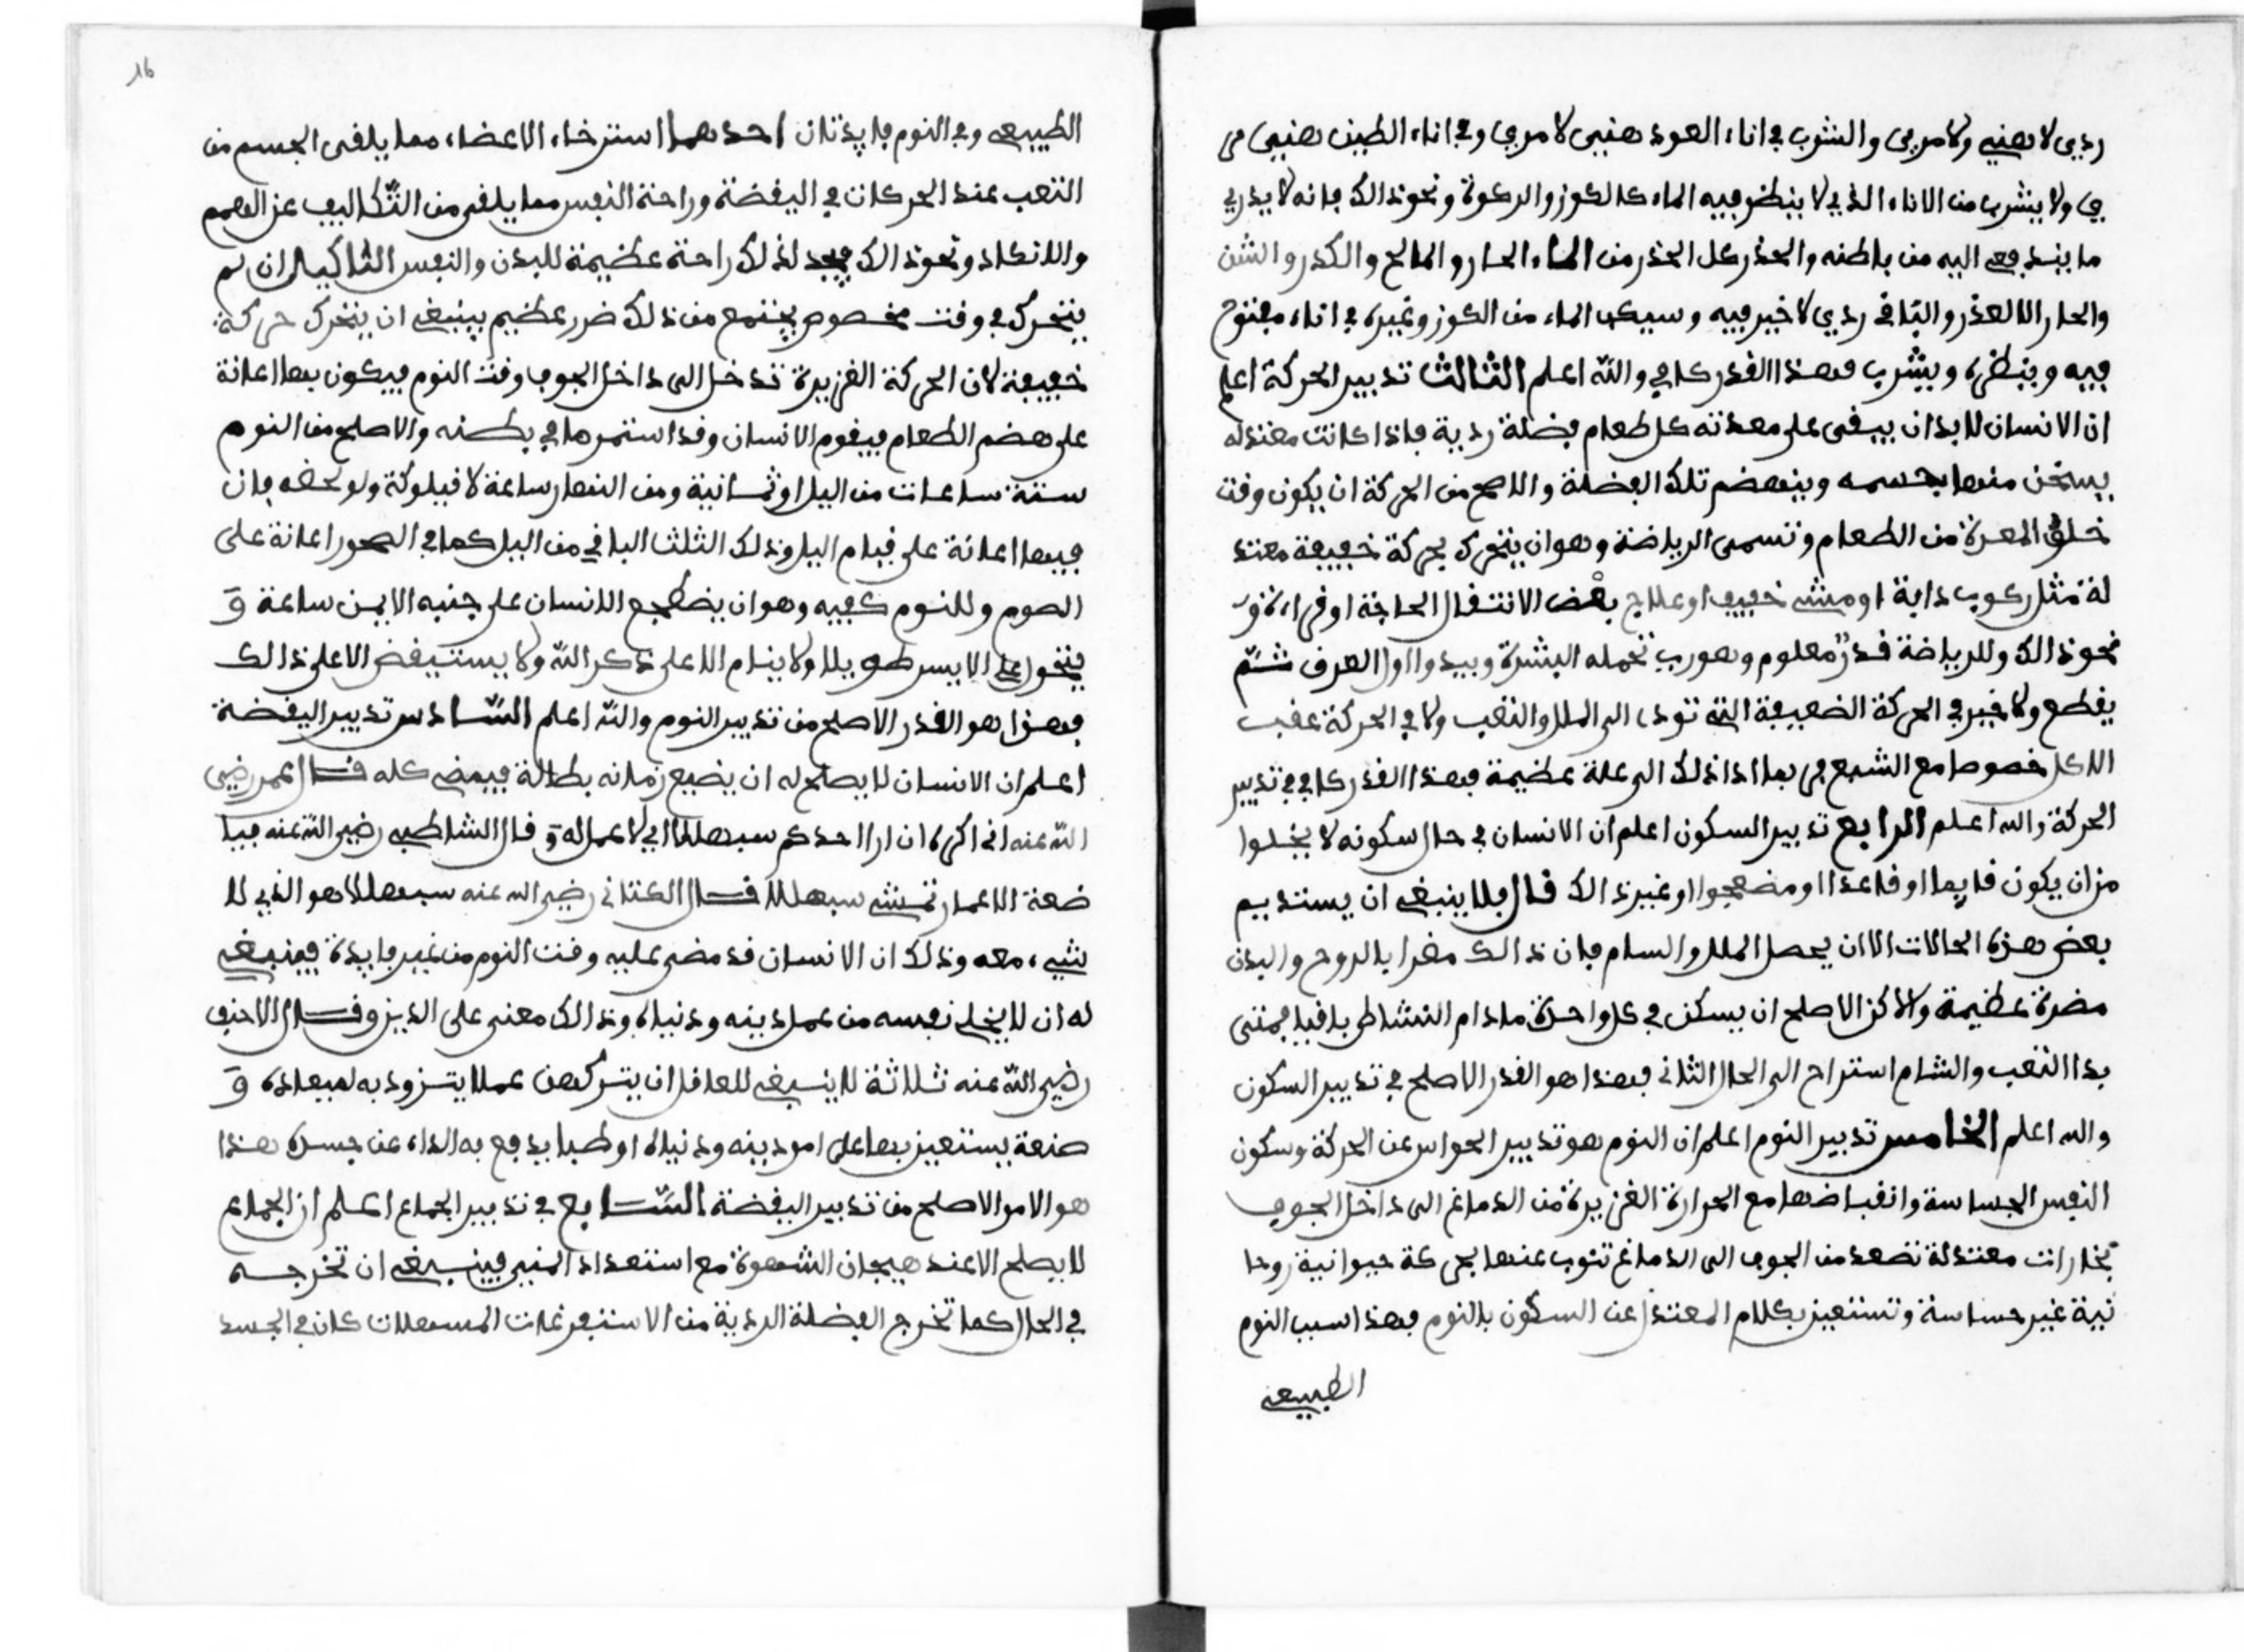 ردي لا هنيء ولا مري والشرب في اناء العود هنيي لا مري وفي اناء الطين هنيي مر
ي ولا يشرب من الاناء الذي لا ينظر فيه الماء كالكوز والركوة ونحو ذالك فانه لا يدري
ما يندفع اليه من باطنه والحذر كل الحذر من الماء الحار والمالح والكدر والشن
والحار الا لعذر والباقي ردي لا خير فيه وسيكب الماء من الكوز وغيره في اناء مفتوح
فيه وينظره ويشرب فهذا القدر كافي والله اعلم الثالث تدبير الحركة اعلم
ان الانسان لابد ان يبقى على معدته كل طعام فضلة ردية فاذا كانت معتدله
يسخن منها بجسمه وينهضم تلك الفضلة والاصح من الحركة ان يكون وقت
خلو المعدة من الطعام وتسمى الرياضة وهو ان يتحرك بحركة خفيفة معتد
لة مثل ركوب دابة او مشي خفيف او علاج بعض الانتقال الحاجة او قراءة و
نحو ذالك وللرياضة قدر معلوم وهو رب تحمله البشرة ويبدوا اول العرق ثم
يقطع ولا خير في الحركة الضعيفة التي تودي الى الملل والتعب ولا في الحركة عقب
الاكل خصوصا مع الشبع فربما اذا ذلك الى علة عظيمة فهذا القدر كافي في تدبير
الحركة والله اعلم الرابع تدبير السكون اعلم ان الانسان في حال سكونه لا يخلوا
من ان يكون قايما او قاعدا او مضجعوا او غير ذالك قال فلا ينبغي ان يستديم
بعض هذه الحالات الا ان يحصل الملل والسام فان ذالك مضرا بالروح والبدن
مضرة عظيمة ولاكن الاصلح ان يسكن في كل واحدة ما دام النشاط باقيا فمتى
بدا التعب والشام استراح الى الحال الثاني فهذا هو القدر الاصلح في تدبير السكون
والله اعلم الخامس تدبير النوم اعلم ان النوم هو تدبير الحواس عن الحركة وسكون
النفس الجساسة وانقباضها مع الحرارة الغريزية من الدماغ الى داخل الجوف
بخارات معتدلة تصعد من الجوف الى الدماغ تنوب عنها بحركة حيوانية روحا
نية غير حساسة وتستعين بكلام المعتدل عن السكون بالنوم فهذا سبب النوم
الطبيعي
16
الطبيعي وفي النوم فايدتان احدهما استرخاء الاعضاء مما يلقى الجسم من
التعب عند الحركات في اليقضة وراحة النفس مما يلقى من التكاليف عن الهمم
والانكاد ونحو ذالك فيجد لذلك راحة عظيمة للبدن والنفس الثاني ان لم
يتحرك في وقت مخصوص يجتمع من ذلك ضرر عظيم فينبغي ان يتحرك حركة
خفيفة لان الحركة الغزيرة تدخل الى داخل الجوف وقت النوم فيكون بها اعانة
على هضم الطعام فيقوم الانسان وقد استمر ما في بطنه والاصلح من النوم
ستة ساعات من اليل او ثمانية ومن النهار ساعة لا قيلوكة ولو لحظه فان
فيها اعانة على قيام اليل وذلك الثلث الباقي من اليل كما في السحور اعانة على
الصوم وللنوم كيفيه وهو ان يضطجع الانسان على جنبه الايمن ساعة و
يتحول على الايسر طويلا ولا ينام الا على ذكر الله ولا يستيقض الا على ذالك
فهذا هو القدر الاصلح من تدبير النوم والله اعلم السادس تدبير اليقضة
اعلم ان الانسان لا يصلح له ان يضيع زمانه بطالة فيمضي كله قال عمر رضي
الله عنه اني اكره ان ارا احدكم سبهللا اي لا عمل له و قال الشاطبي رضي الله عنه فيا
ضعة الاعمار تمشي سبهللا قال الكتاني رضي الله عنه سبهللا هو الذي لا
شيء معه وذلك ان الانسان قد مضى عليه وقت النوم من غير فايدة فينبغي
له ان لا يخلي نفسه من عمل دينه ودنياه وذالك معنى على الدين وقال الاحنف
رضي الله عنه ثلاثة لا ينبغي للعاقل ان يتركهن عملا يتزود به لميعاده و
صنعة يستعين بها على امور دينه ودنياه او طبا يدفع به الداء عن جسده هذا
هو الامر الاصلح من تدبير اليقضة السابع في تدبير الجماع اعلم ان الجماع
لا يصلح الا عند هيجان الشهوة مع استعداد المني فينبغي ان تخرجه
في الحال كما تخرج الفضلة الردية من الاستفرغات المسهلات كان في الجسد